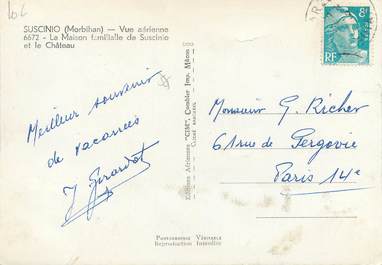 SUSCINIO (Morbihan) — Vue aérienne
6672 - La Maison familiale de Suscinio
et le Château
Meilleur souvenir
de vacances
J Girardot
Editions Aériennes "CIM", Combier Imp. Mâcon
PHOTOGRAPHIE VÉRITABLE
Reproduction Interdite
8F
RF
Monsieur G. Richer
61 rue de Gergovie
Paris 14e